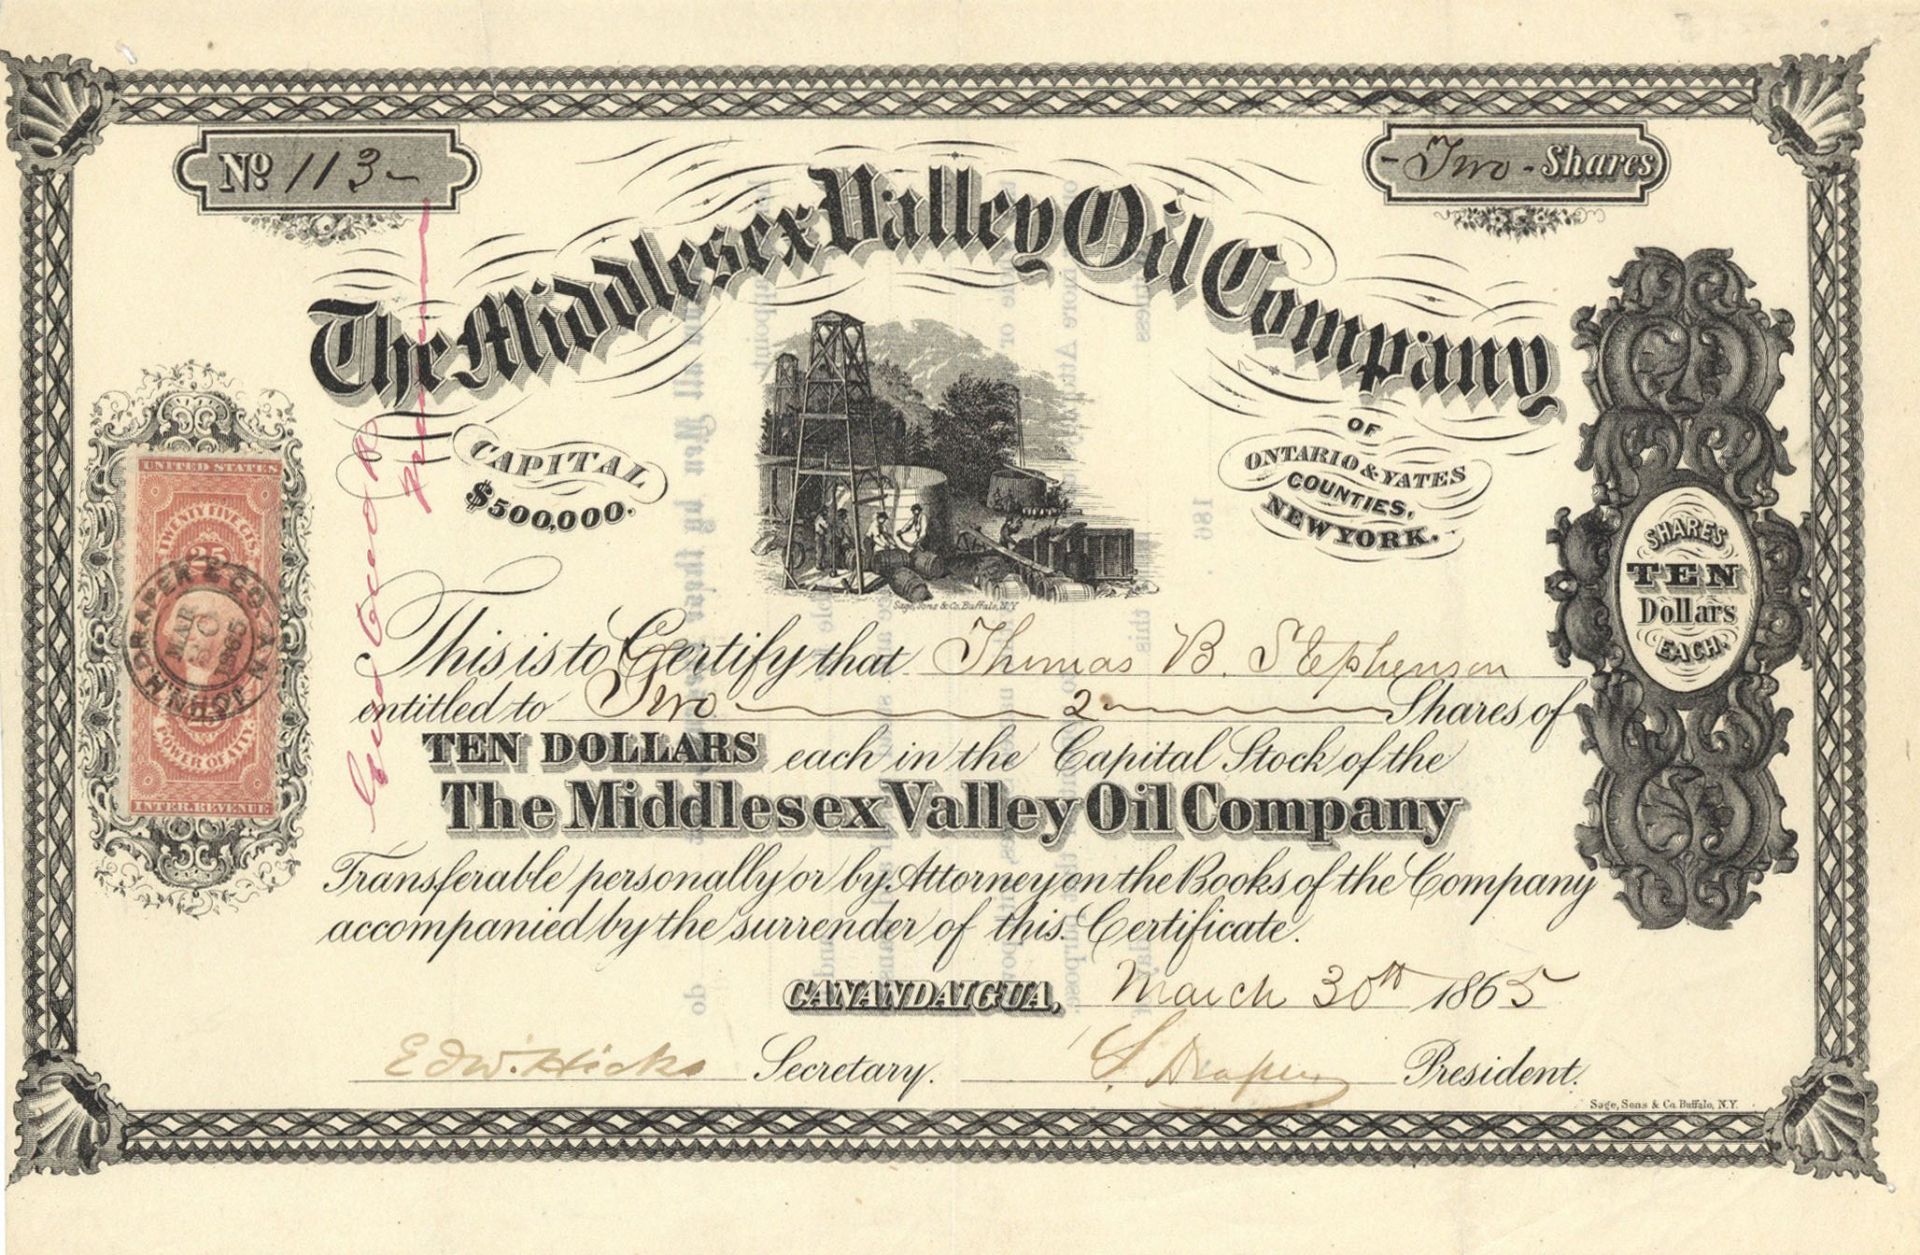 No. 113
- Two - Shares
The Middlesex Valley Oil Company
CAPITAL
$500,000.
OF
ONTARIO & YATES
COUNTIES,
NEW YORK.
Sage, Sons & Co. Buffalo, N.Y.
UNITED STATES
TWENTY FIVE CTS.
25
JOHN H. DRAPER & CO.
MAR
30
1865
POWER OF ATT'Y
INTER. REVENUE
SHARES
TEN
Dollars
EACH.
This is to Certify that Thomas B. Stephenson
entitled to Two 2 Shares of
TEN DOLLARS each in the Capital Stock of the
The Middlesex Valley Oil Company
Transferable personally or by Attorney on the Books of the Company
accompanied by the surrender of this Certificate.
CANANDAIGUA, March 30th 1865
Edw. Hicks Secretary. S. Draper President.
Sage, Sons & Co. Buffalo, N.Y.